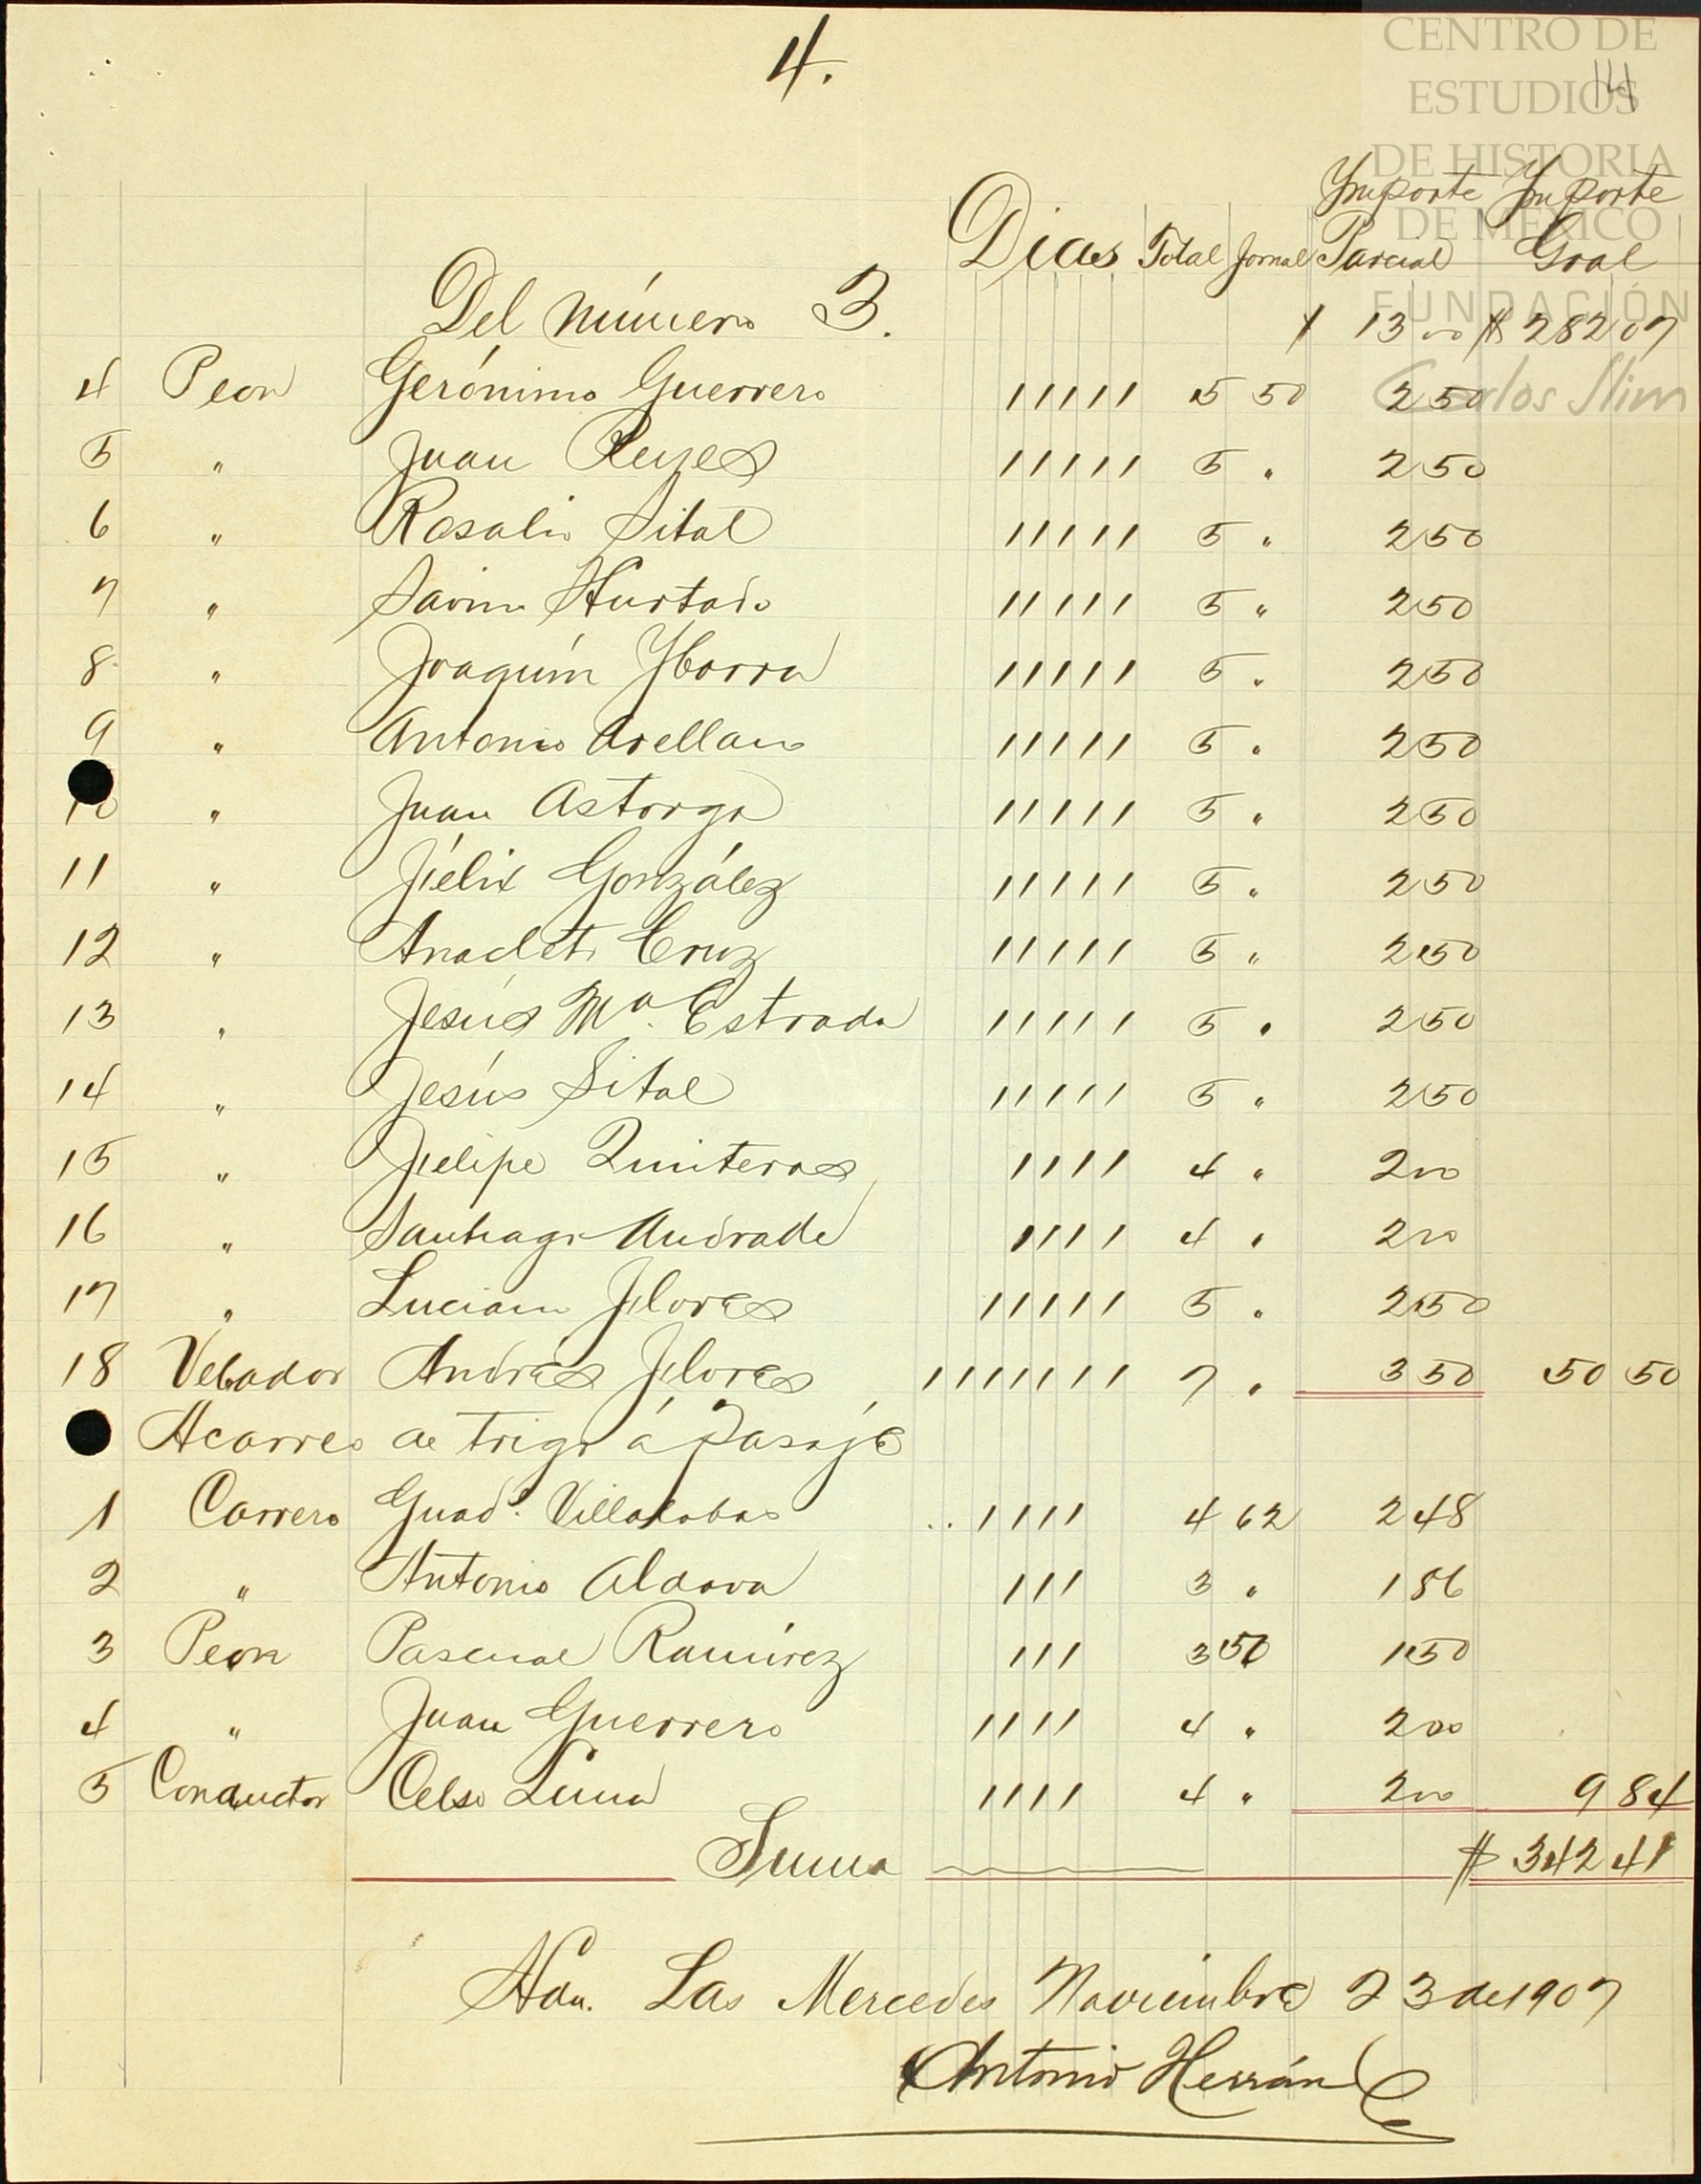 4.
14
CENTRO DE
ESTUDIOS
DE HISTORIA
DE MÉXICO
FUNDACIÓN
Carlos Slim
Dias Total Jornal Importe Parcial Importe Gral
Del número 3. $ 13 00 $ 282 07
4 Peon Gerónimo Guerrero 11111 5 50 2 50
5 " Juan Reyes 11111 5 " 2 50
6 " Rosalio Sital 11111 5 " 2 50
7 " Savino Hurtado 11111 5 " 2 50
8 " Joaquín Ybarra 11111 5 " 2 50
9 " Antonio Arellano 11111 5 " 2 50
10 " Juan Astorga 11111 5 " 2 50
11 " Félix González 11111 5 " 2 50
12 " Anacleto Cruz 11111 5 " 2 50
13 " Jesús Ma. Estrada 11111 5 " 2 50
14 " Jesús Sital 11111 5 " 2 50
15 " Felipe Quinteros 1111 4 " 2 00
16 " Santiago Andrade 1111 4 " 2 00
17 " Luciano Flores 11111 5 " 2 50
18 Velador Andrés Flores 1111111 7 " 3 50 50 50
Acarreo de trigo á Pasaje
1 Carrero Guade. Villalobos 1111 4 62 2 48
2 " Antonio Aldava 111 3 " 1 86
3 Peon Pascual Ramírez 111 3 50 1 50
4 " Juan Guerrero 1111 4 " 2 00
5 Conductor Celso Luna 1111 4 " 2 00 9 84
Suma $ 342 41
Hda. Las Mercedes Noviembre 23 de 1907
Antonio Herrán